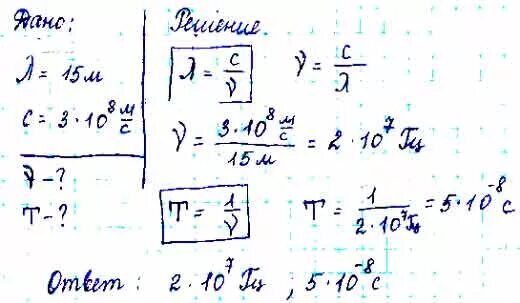 Дано:
λ = 15 м
c = 3·10⁸ м/с
ν - ?
T - ?
Решение.
λ = c/ν    ν = c/λ
ν = 3·10⁸ м/с / 15 м = 2·10⁷ Гц
T = 1/ν    T = 1/2·10⁷Гц = 5·10⁻⁸ с
Ответ: 2·10⁷ Гц, 5·10⁻⁸ с